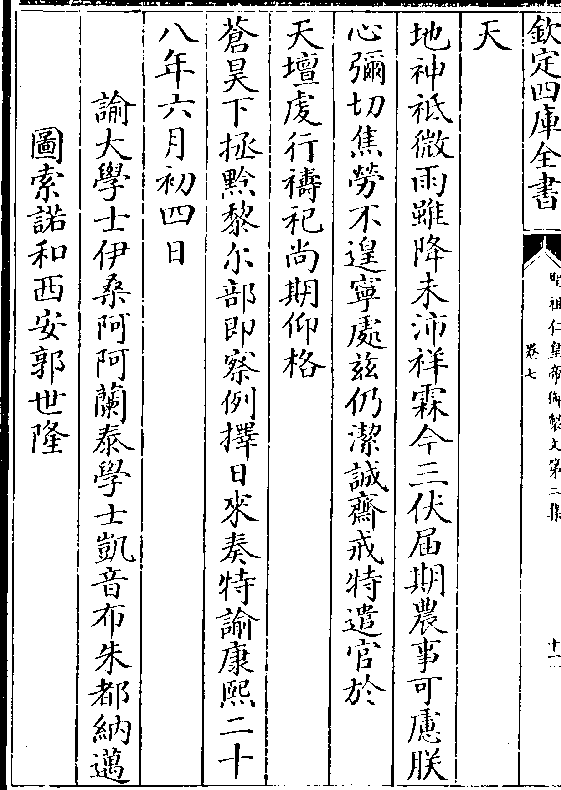 欽定四庫全書
聖祖仁皇帝御製文第二集
卷七
十一
天
地神祇微雨雖降未沛祥霖今三伏届期農事可慮朕
心彌切焦勞不遑寧處兹仍潔誠齋戒特遣官於
天壇虔行禱祀尚期仰格
蒼昊下拯黔黎尔部即察例擇日來奏特諭康熙二十
八年六月初四日
諭大學士伊桑阿阿蘭泰學士凱音布朱都納邁
圖索諾和西安郭世隆